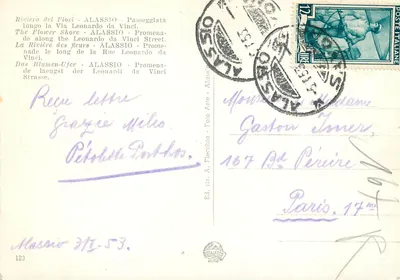 Riviera dei Fiori - ALASSIO - Passeggiata
lungo la Via Leonardo da Vinci.
The Flower Shore - ALASSIO - Promenade
along the Leonardo da Vinci Street.
La Rivière des fleurs - ALASSIO - Promenade
le long de la Rue Leonardo da
Vinci.
Das Blumen-Ufer - ALASSIO - Promenade
laengst der Leonardo da Vinci
Strasse.
Reçu lettre
Grazie
Alassio 3/I-53.
123
ALASSIO
ALASSIO
POSTE ITALIANE
Monsieur Madame
Gaston
167 Bd Péreire
Paris. 17me
167